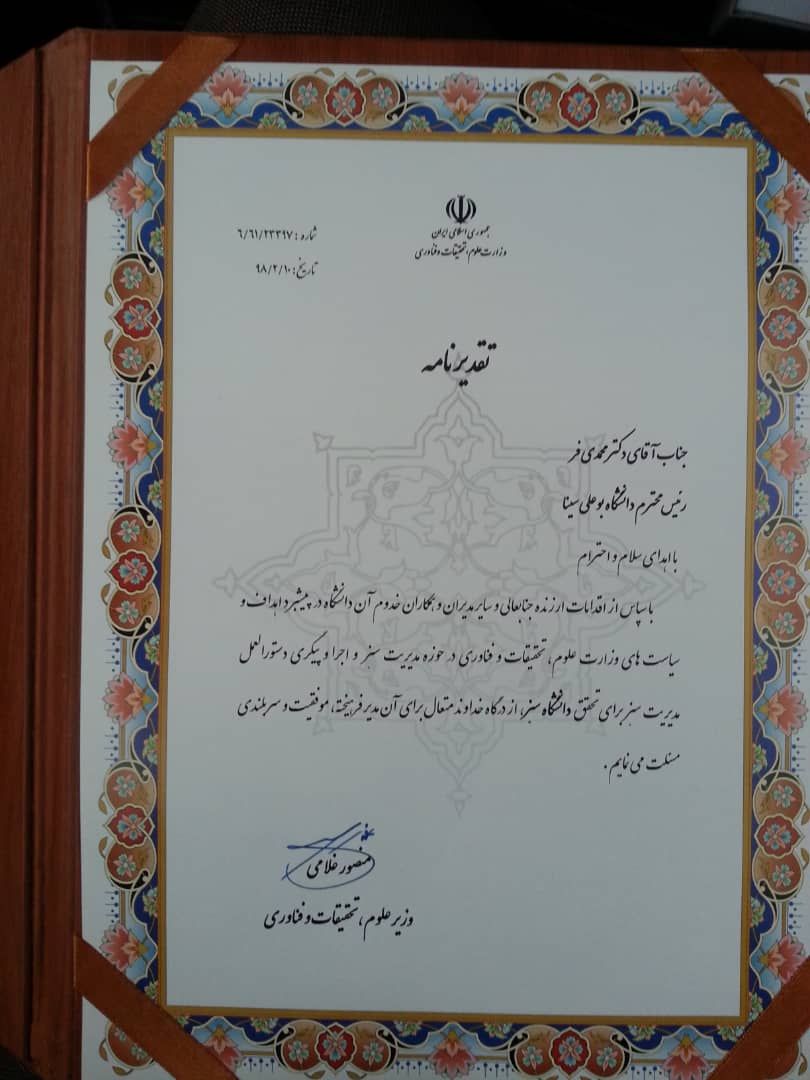 جمهوری اسلامی ایران
وزارت علوم، تحقیقات و فناوری
شماره: ۶/۶۱/۲۳۳۹۷
تاریخ: ۹۸/۲/۱۰
تقدیرنامه
جناب آقای دکتر محمدی فر
رئیس محترم دانشگاه بوعلی سینا
با اهدای سلام و احترام
با سپاس از اقدامات ارزنده جنابعالی و سایر مدیران و همکاران خدوم آن دانشگاه در پیشبرد اهداف و
سیاست های وزارت علوم، تحقیقات و فناوری در حوزه مدیریت سبز و اجرا و پیگیری دستورالعمل
مدیریت سبز برای تحقق دانشگاه سبز، از درگاه خداوند متعال برای آن مدیر فرهیخته، موفقیت و سربلندی
مسئلت می نمایم.
منصور غلامی
وزیر علوم، تحقیقات و فناوری